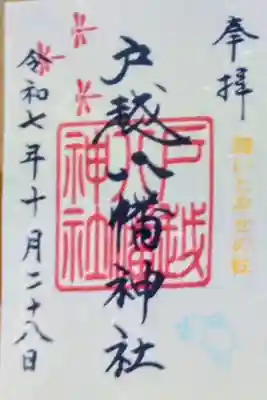 奉拝
戸越八幡神社
戸越八幡神社
令和七年十月二十八日